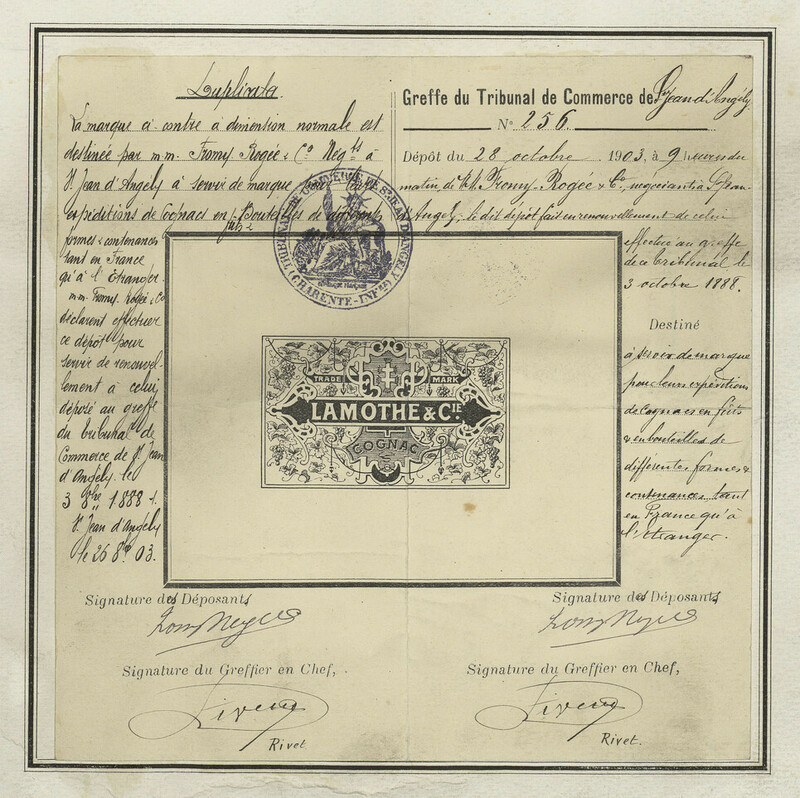 Duplicata
La marque ci contre à dimention normale est
destinée par m.m. Fromy Rogée & Co Négts à
St Jean d'Angely à servir de marque pour leurs
expéditions de Cognacs en fûts & Bouteilles de différents
formes & contenances
tant en France
qu'à l'Etranger.
m.m. Fromy, Rogée & Co
déclarent effectuer
ce dépôt pour
servir de renouvel-
lement à celui
déposé au greffe
du tribunal de
Commerce de St Jean
d'Angely le
3 8bre 1888 -.
St Jean d'Angely
le 26 8bre 03.
Greffe du Tribunal de Commerce de St Jean d'Angély
No 256
Dépôt du 28 octobre 1903, à 9 heures du
matin, de M.M. Fromy, Rogée & Co, négociants à St Jean
d'Angely, le dit dépôt fait en renouvellement de celui
effectué au greffe
de ce tribunal le
3 octobre 1888.
Destiné
à servir de marque
pour leurs expéditions
de cognacs en fûts
& en bouteilles de
différentes formes &
contenances tant
en France qu'à
l'étranger.
TRIBUNAL DE COMMERCE DE ST JEAN D'ANGELY
(CHARENTE-INFRE)
TRADE MARK
LAMOTHE & CIE.
COGNAC
Signature des Déposants
Signature des Déposants
Signature du Greffier en Chef,
Rivet
Signature du Greffier en Chef,
Rivet.